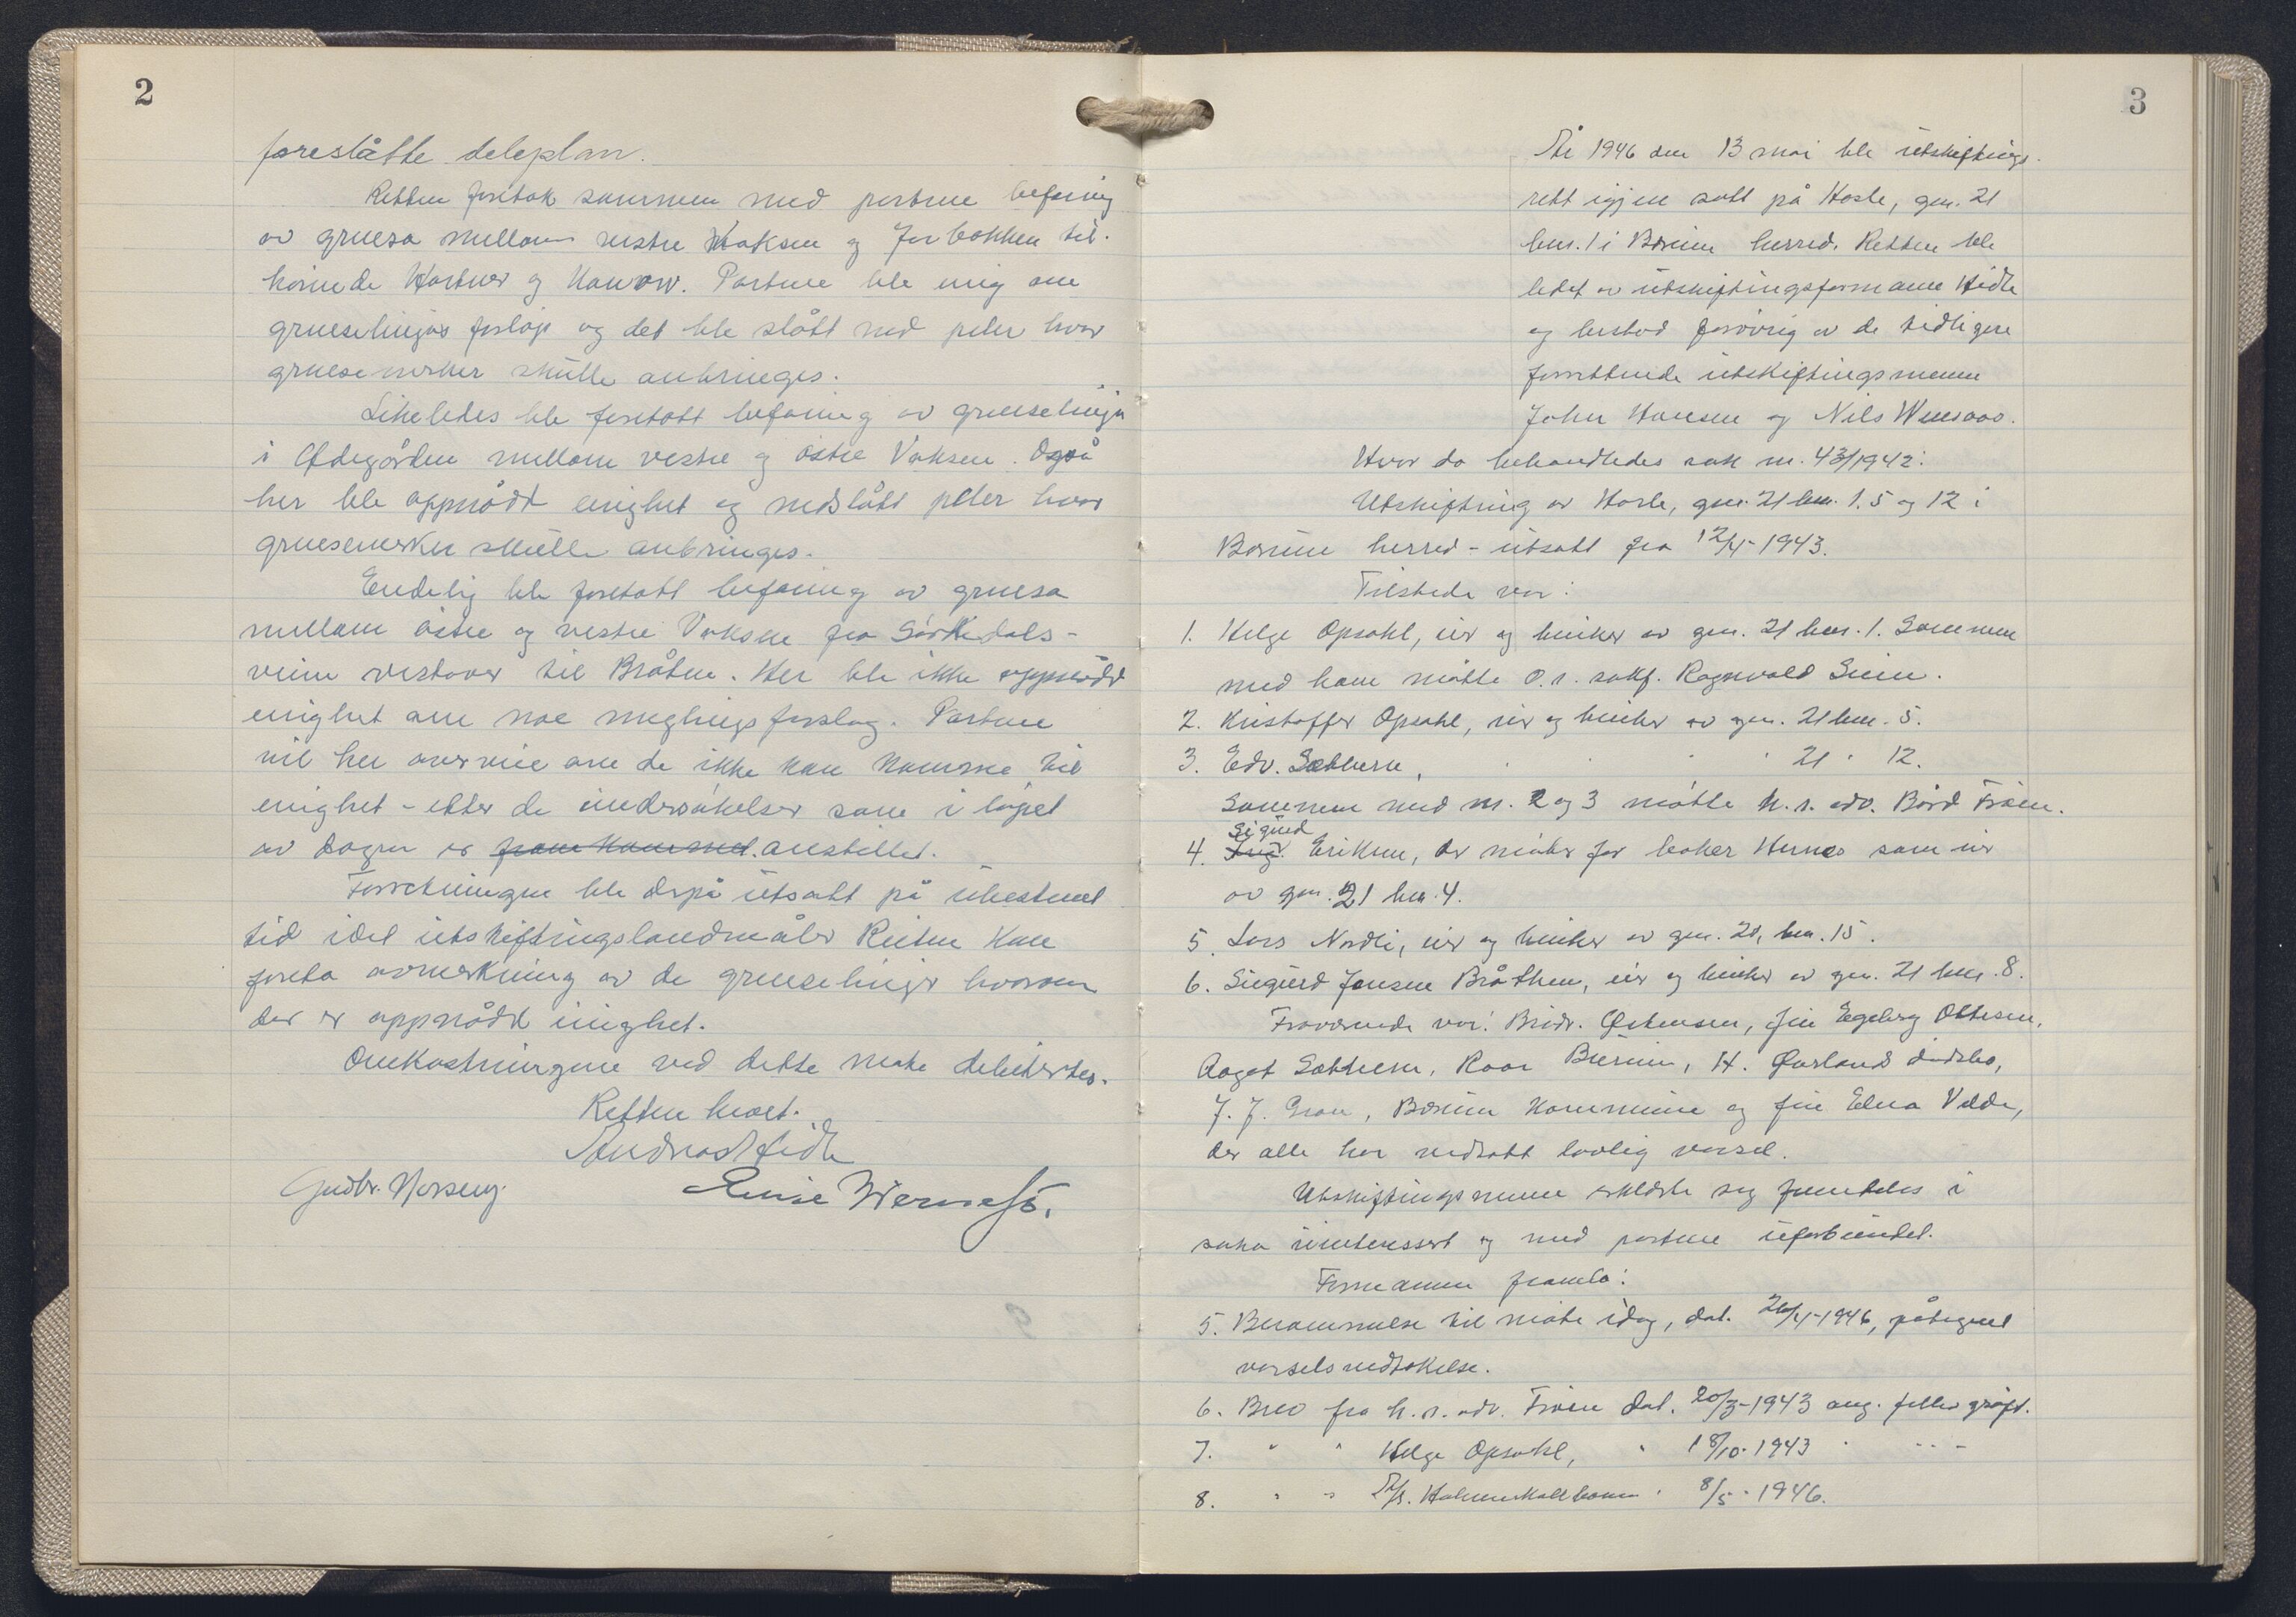 2
foreslåtte deleplan.
Retten foretok sammen med partene befaring
av grensa mellom vestre Voksen og Jarbakken til-
hørende Hartner og Hauow. Partene ble enig om
grenselinjas forløp og det ble slått ned peler hvor
grensemerker skulle anbringes.
Likeledes ble foretatt befaring av grenselinja
i Ødegården mellom vestre og østre Voksen. Også
her ble oppnådd enighet og nedslått peler hvor
grensemerker skulle anbringes.
Endelig ble foretatt befaring av grensa
mellom østre og vestre Voksen fra Sørkedals-
veien vestover til Bråten. Her ble ikke oppnådd
enighet om noe meglingsforslag. Partene
vil her overveie om de ikke kan komme til
enighet - etter de undersøkelser som i løpet
av dagen er fram kommet. anstillet.
Forretningen ble derpå utsatt på ubestemt
tid idet utskiftingslandmåler Reiten kan
foreta avmerkning av de grenselinjer hvorom
der er oppnådd enighet.
Omkostningene ved dette møte debiteres.
Retten hevet.
Andreas Hidle
Gudbr. Norseng. Einar Wernesø.
3
År 1946 den 13 mai ble utskiftings-
rett igjen satt på Hosle, gnr. 21
bnr. 1 i Bærum herred. Retten ble
ledet av utskiftingsformann Hidle
og bestod forøvrig av de tidligere
forrettende utskiftingsmenn
John Hansen og Nils Wensaas.
Hvor da behandledes sak nr. 43/1942:
Utskiftning av Hosle, gnr. 21 bnr. 1, 5 og 12 i
Bærum herred - utsatt fra 12/4-1943.
Tilstede var:
1. Helge Opsahl, eier og bruker av gnr. 21 bnr. 1. Sammen
med ham møtte o.r. sakf. Ragnvald Seim.
2. Kristoffer Opsahl, eier og bruker av gnr. 21 bnr. 5.
3. Edv. Sæthern, " " " " 21 " 12.
Sammen med nr. 2 og 3 møtte h.r. adv. Bård Frøen.
Sigurd
4. Eriksen, der møter for baker Hernes som eier
av gnr. 21 bnr. 4.
5. Lars Nordli, eier og bruker av gnr. 20, bnr. 15.
6. Sigurd Jansen Bråthen, eier og bruker av gnr. 21 bnr. 8.
Fraværende var: Brødr. Østensen, fru Egeberg Ottesen,
Aagot Sætheren, Roar Bureim, H. Øverland dødsbo,
J. J. Gran, Bærum kommune og fru Edna Velde,
der alle har vedtatt lovlig varsel.
Utskiftingsmenn erklærte seg fremdeles i
saka uinteressert og med partene uforbundet.
Formannen framla:
5. Berammelse til møte idag, dat. 26/4-1946, påtegnet
varselsvedtakelse.
6. Brev fra h.r. adv. Frøen dat. 20/3-1943 ang. felles grøft.
7. " " Helge Opsahl, " 18/10-1943 " - - -
8. " " A/S. Holmenkollbanen " 8/5-1946.